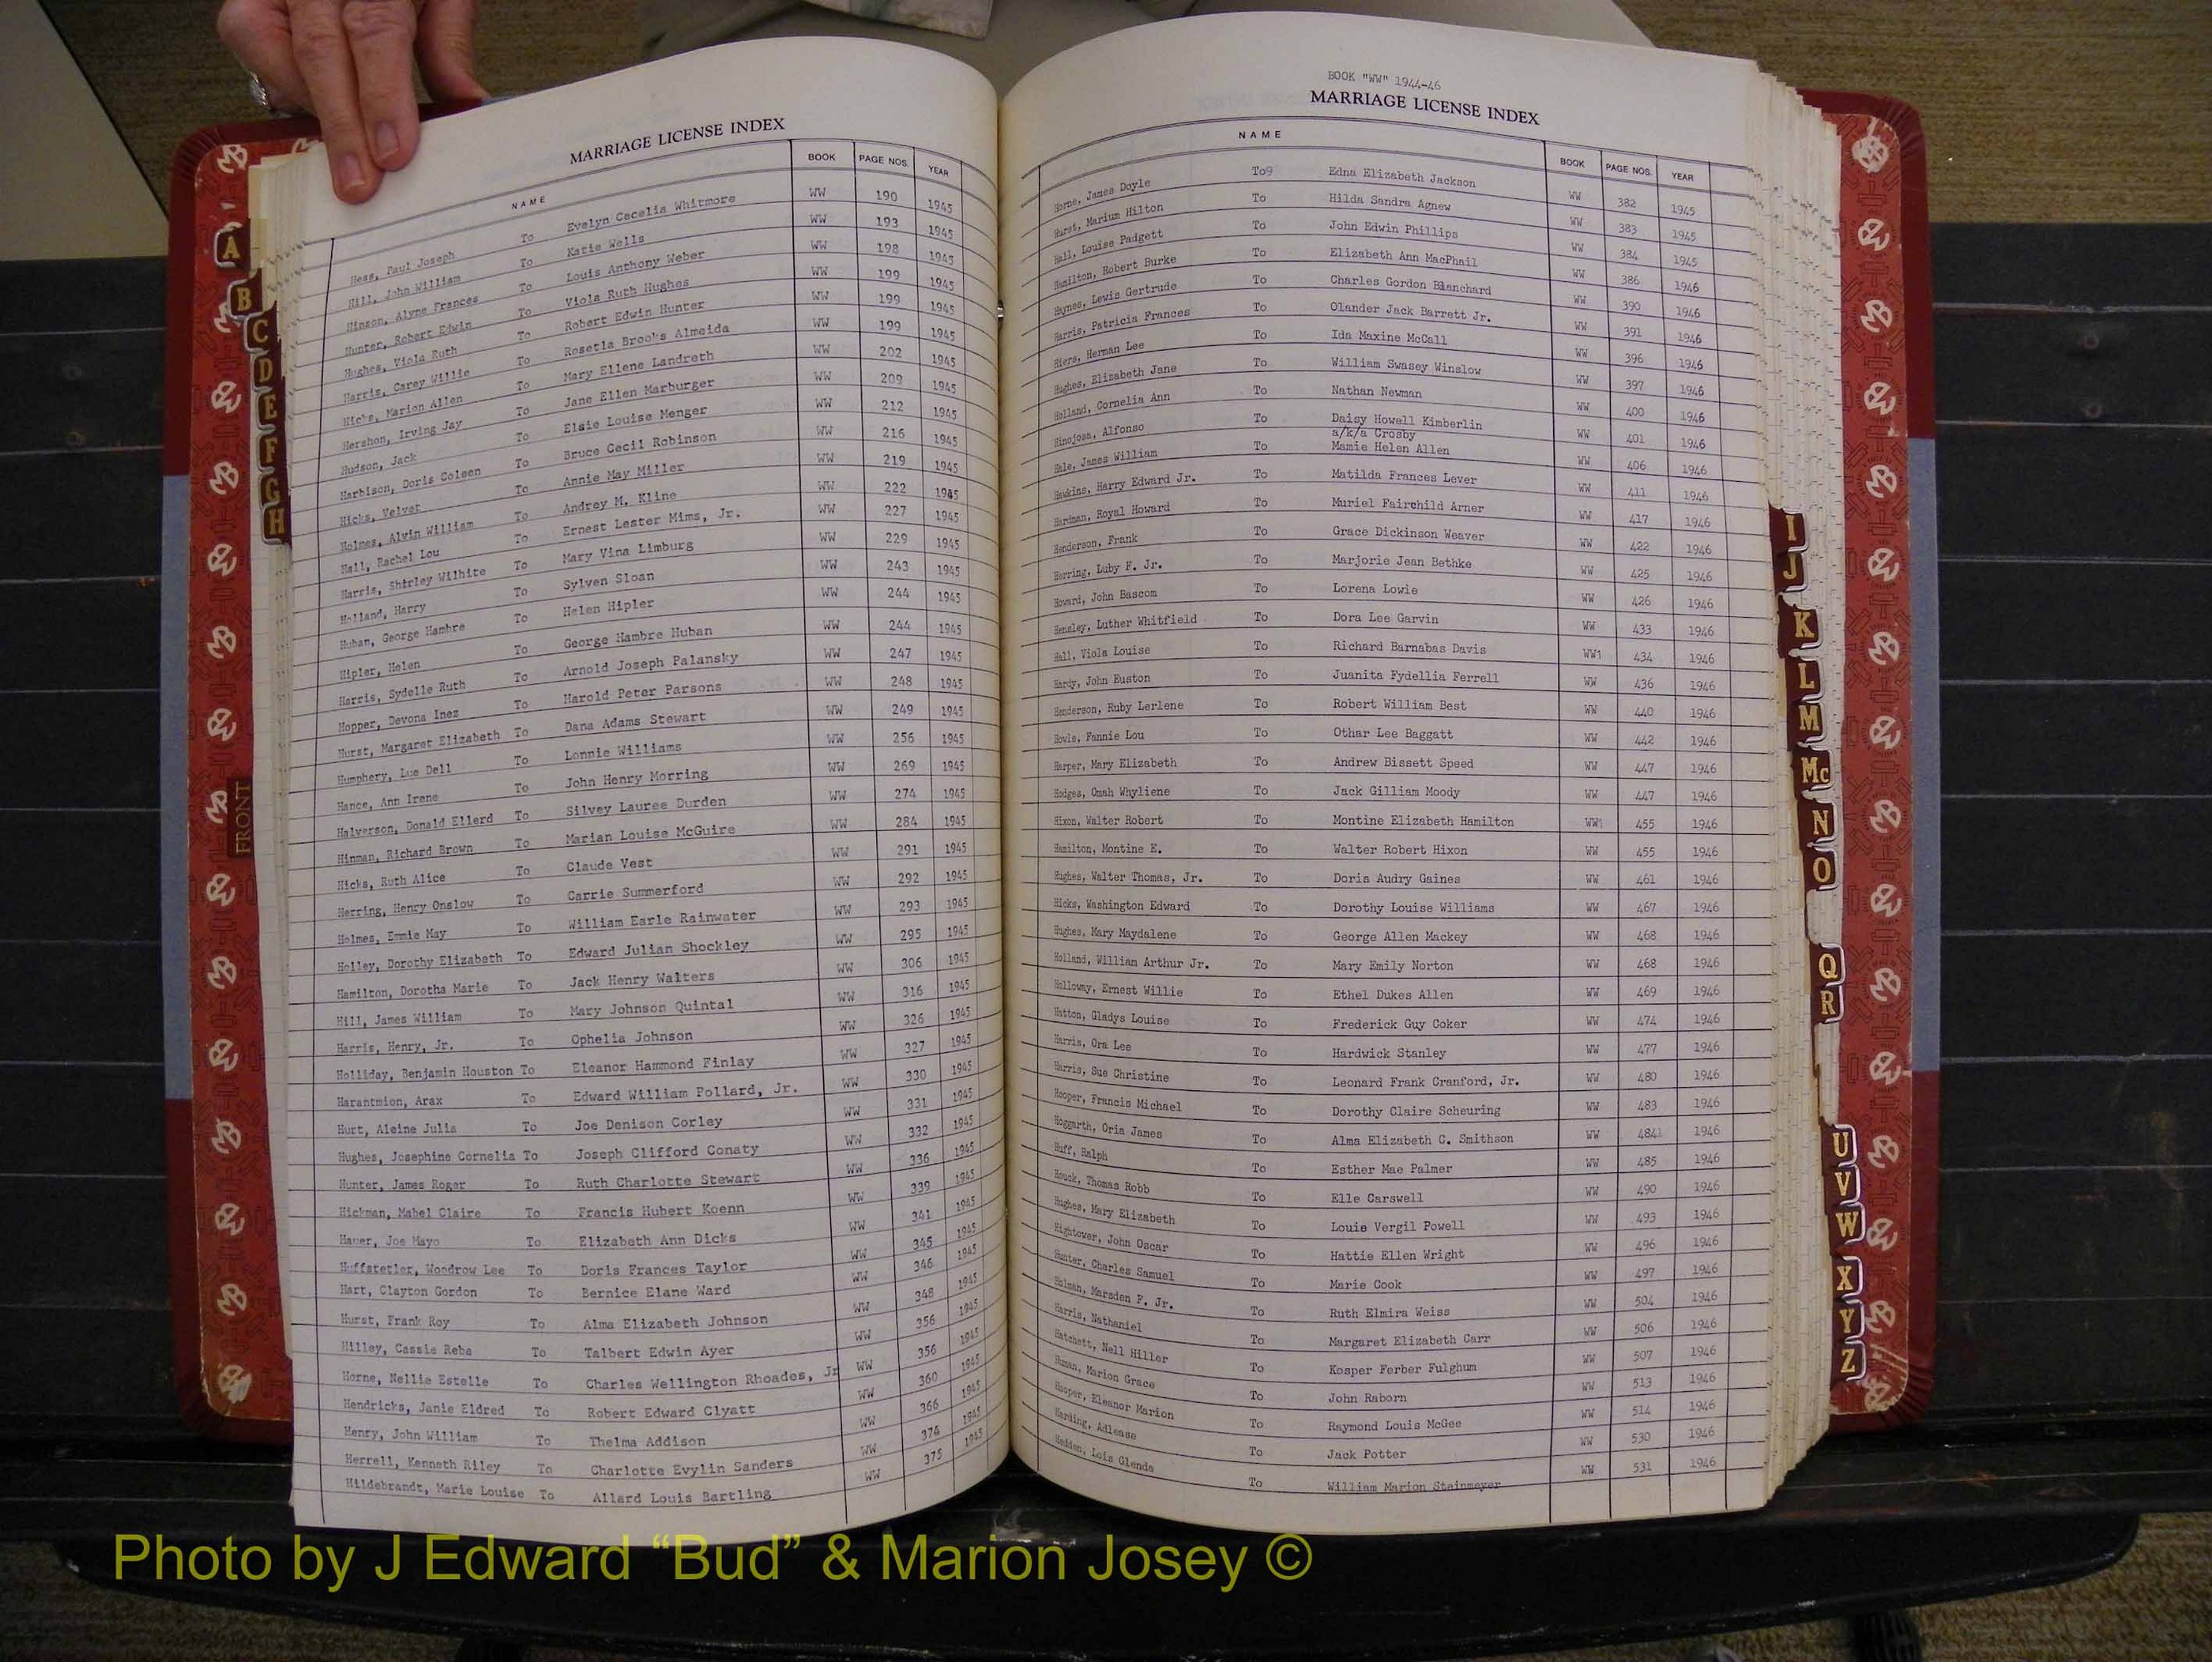 MARRIAGE LICENSE INDEX
NAME BOOK PAGE NOS. YEAR
Hess, Paul Joseph To Evelyn Cecelia Whitmore WW 190 1945
Hill, John William To Katie Wells WW 193 1945
Hinson, Alyne Frances To Louis Anthony Weber WW 198 1945
Hunter, Robert Edwin To Viola Ruth Hughes WW 199 1945
Hughes, Viola Ruth To Robert Edwin Hunter WW 199 1945
Harris, Carey Willie To Rosetla Brooks Almeida WW 199 1945
Hicks, Marion Allen To Mary Ellene Landreth WW 202 1945
Hershon, Irving Jay To Jane Ellen Marburger WW 209 1945
Hudson, Jack To Elsie Louise Menger WW 212 1945
Harbison, Doris Coleen To Bruce Cecil Robinson WW 216 1945
Hicks, Velvet To Annie May Miller WW 219 1945
Holmes, Alvin William To Andrey M. Kline WW 222 1945
Hall, Rachel Lou To Ernest Lester Mims, Jr. WW 227 1945
Harris, Shirley Wilhite To Mary Vina Limburg WW 229 1945
Holland, Harry To Sylven Sloan WW 243 1945
Huban, George Hambre To Helen Hipler WW 244 1945
Hipler, Helen To George Hambre Huban WW 244 1945
Harris, Sydelle Ruth To Arnold Joseph Palansky WW 247 1945
Hopper, Devona Inez To Harold Peter Parsons WW 248 1945
Hurst, Margaret Elizabeth To Dana Adams Stewart WW 249 1945
Humphery, Lue Dell To Lonnie Williams WW 256 1945
Hance, Ann Irene To John Henry Morring WW 269 1945
Halverson, Donald Ellerd To Silvey Lauree Durden WW 274 1945
Hinman, Richard Brown To Marian Louise McGuire WW 284 1945
Hicks, Ruth Alice To Claude Vest WW 291 1945
Herring, Henry Onslow To Carrie Summerford WW 292 1945
Holmes, Emmie May To William Earle Rainwater WW 293 1945
Holley, Dorothy Elizabeth To Edward Julian Shockley WW 295 1945
Hamilton, Dorotha Marie To Jack Henry Walters WW 306 1945
Hill, James William To Mary Johnson Quintal WW 316 1945
Harris, Henry, Jr. To Ophelia Johnson WW 326 1945
Holliday, Benjamin Houston To Eleanor Hammond Finlay WW 327 1945
Harantmion, Arax To Edward William Pollard, Jr. WW 330 1945
Hurt, Aleine Julia To Joe Denison Corley WW 331 1945
Hughes, Josephine Cornelia To Joseph Clifford Conaty WW 332 1945
Hunter, James Roger To Ruth Charlotte Stewart WW 336 1945
Hickman, Mabel Claire To Francis Hubert Koenn WW 339 1945
Hauer, Joe Mayo To Elizabeth Ann Dicks WW 341 1945
Huffstetler, Woodrow Lee To Doris Frances Taylor WW 345 1945
Hart, Clayton Gordon To Bernice Elane Ward WW 346 1945
Hurst, Frank Roy To Alma Elizabeth Johnson WW 348 1945
Hilley, Cassie Reba To Talbert Edwin Ayer WW 356 1945
Horne, Nellie Estelle To Charles Wellington Rhoades, Jr WW 356 1945
Hendricks, Janie Eldred To Robert Edward Clyatt WW 360 1945
Henry, John William To Thelma Addison WW 366 1945
Herrell, Kenneth Riley To Charlotte Evylin Sanders WW 374 1945
Hildebrandt, Marie Louise To Allard Louis Bartling WW 375 1945
BOOK "WW" 1944-46
MARRIAGE LICENSE INDEX
NAME BOOK PAGE NOS. YEAR
Horne, James Doyle To9 Edna Elizabeth Jackson WW 382 1945
Hurst, Marium Hilton To Hilda Sandra Agnew WW 383 1945
Hall, Louise Padgett To John Edwin Phillips WW 384 1945
Hamilton, Robert Burke To Elizabeth Ann MacPhail WW 386 1946
Haynes, Lewis Gertrude To Charles Gordon Blanchard WW 390 1946
Harris, Patricia Frances To Olander Jack Barrett Jr. WW 391 1946
Hiers, Herman Lee To Ida Maxine McCall WW 396 1946
Hughes, Elizabeth Jane To William Swasey Winslow WW 397 1946
Holland, Cornelia Ann To Nathan Newman WW 400 1946
Hinojosa, Alfonso To Daisy Howell Kimberlin WW 401 1946
a/k/a Crosby
Hale, James William To Mamie Helen Allen WW 406 1946
Hawkins, Harry Edward Jr. To Matilda Frances Lever WW 411 1946
Hardman, Royal Howard To Muriel Fairchild Arner WW 417 1946
Henderson, Frank To Grace Dickinson Weaver WW 422 1946
Herring, Luby F. Jr. To Marjorie Jean Bethke WW 425 1946
Howard, John Bascom To Lorena Lowie WW 426 1946
Hensley, Luther Whitfield To Dora Lee Garvin WW 433 1946
Hall, Viola Louise To Richard Barnabas Davis WW1 434 1946
Hardy, John Euston To Juanita Fydellia Ferrell WW 436 1946
Henderson, Ruby Lerlene To Robert William Best WW 440 1946
Howle, Fannie Lou To Othar Lee Baggatt WW 442 1946
Harper, Mary Elizabeth To Andrew Bissett Speed WW 447 1946
Hodges, Omah Whyliene To Jack Gilliam Moody WW 447 1946
Hixon, Walter Robert To Montine Elizabeth Hamilton WW1 455 1946
Hamilton, Montine E. To Walter Robert Hixon WW 455 1946
Hughes, Walter Thomas, Jr. To Doris Audry Gaines WW 461 1946
Hicks, Washington Edward To Dorothy Louise Williams WW 467 1946
Hughes, Mary Maydalene To George Allen Mackey WW 468 1946
Holland, William Arthur Jr. To Mary Emily Norton WW 468 1946
Holloway, Ernest Willie To Ethel Dukes Allen WW 469 1946
Hatton, Gladys Louise To Frederick Guy Coker WW 474 1946
Harris, Ora Lee To Hardwick Stanley WW 477 1946
Harris, Sue Christine To Leonard Frank Cranford, Jr. WW 480 1946
Hooper, Francis Michael To Dorothy Claire Scheuring WW 483 1946
Hoggarth, Oria James To Alma Elizabeth C. Smithson WW 4841 1946
Huff, Ralph To Esther Mae Palmer WW 485 1946
Houck, Thomas Robb To Elle Carswell WW 490 1946
Hughes, Mary Elizabeth To Louie Vergil Powell WW 493 1946
Hightower, John Oscar To Hattie Ellen Wright WW 496 1946
Hunter, Charles Samuel To Marie Cook WW 497 1946
Holman, Marsden F. Jr. To Ruth Elmira Weiss WW 504 1946
Harris, Nathaniel To Margaret Elizabeth Carr WW 506 1946
Hatchett, Nell Hiller To Kosper Ferber Fulghum WW 507 1946
Human, Marion Grace To John Raborn WW 513 1946
Hooper, Eleanor Marion To Raymond Louis McGee WW 514 1946
Harding, Adlease To Jack Potter WW 530 1946
Hedden, Lois Glenda To William Marion Steinmeyer WW 531 1946
A
B
C
D
E
F
G
H
FRONT
I
J
K
L
M
Mc
N
O
Q
R
U
V
W
X
Y
Z
Photo by J Edward “Bud” & Marion Josey ©